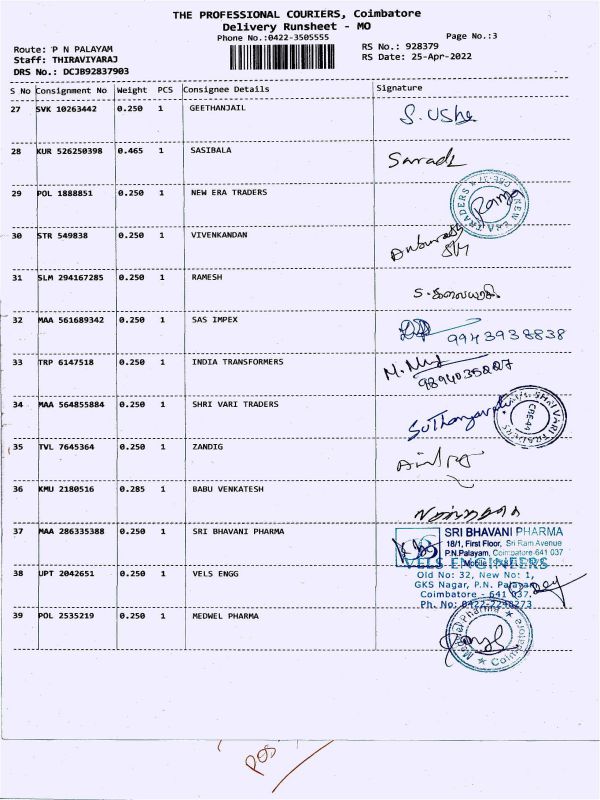 THE PROFESSIONAL COURIERS, Coimbatore
Delivery Runsheet - MO
Phone No.:0422-3505555
Page No.:3
Route: P N PALAYAM
RS No.: 928379
Staff: THIRAVIYARAJ
RS Date: 25-Apr-2022
DRS No.: DCJB92837903
S No Consignment No Weight PCS Consignee Details Signature
27 SVK 10263442 0.250 1 GEETHANJAIL S. Usha
28 KUR 526250398 0.465 1 SASIBALA
29 POL 1888851 0.250 1 NEW ERA TRADERS
30 STR 549838 0.250 1 VIVENKANDAN
31 SLM 294167285 0.250 1 RAMESH
32 MAA 561689342 0.250 1 SAS IMPEX 9943938838
33 TRP 6147518 0.250 1 INDIA TRANSFORMERS
34 MAA 564855884 0.250 1 SHRI VARI TRADERS
35 TVL 7645364 0.250 1 ZANDIG
36 KMU 2180516 0.285 1 BABU VENKATESH
37 MAA 286335388 0.250 1 SRI BHAVANI PHARMA
SRI BHAVANI PHARMA
18/1, First Floor, Sri Ram Avenue
P.N.Palayam, Coimbatore-641 037
38 UPT 2042651 0.250 1 VELS ENGG
VELS ENGINEERS
Old No: 32, New No: 1,
GKS Nagar, P.N. Palayam
Coimbatore - 641 037.
Ph. No: 0422-2240273
39 POL 2535219 0.250 1 MEDWEL PHARMA
Medwel Pharma ★ Coimbatore
POS